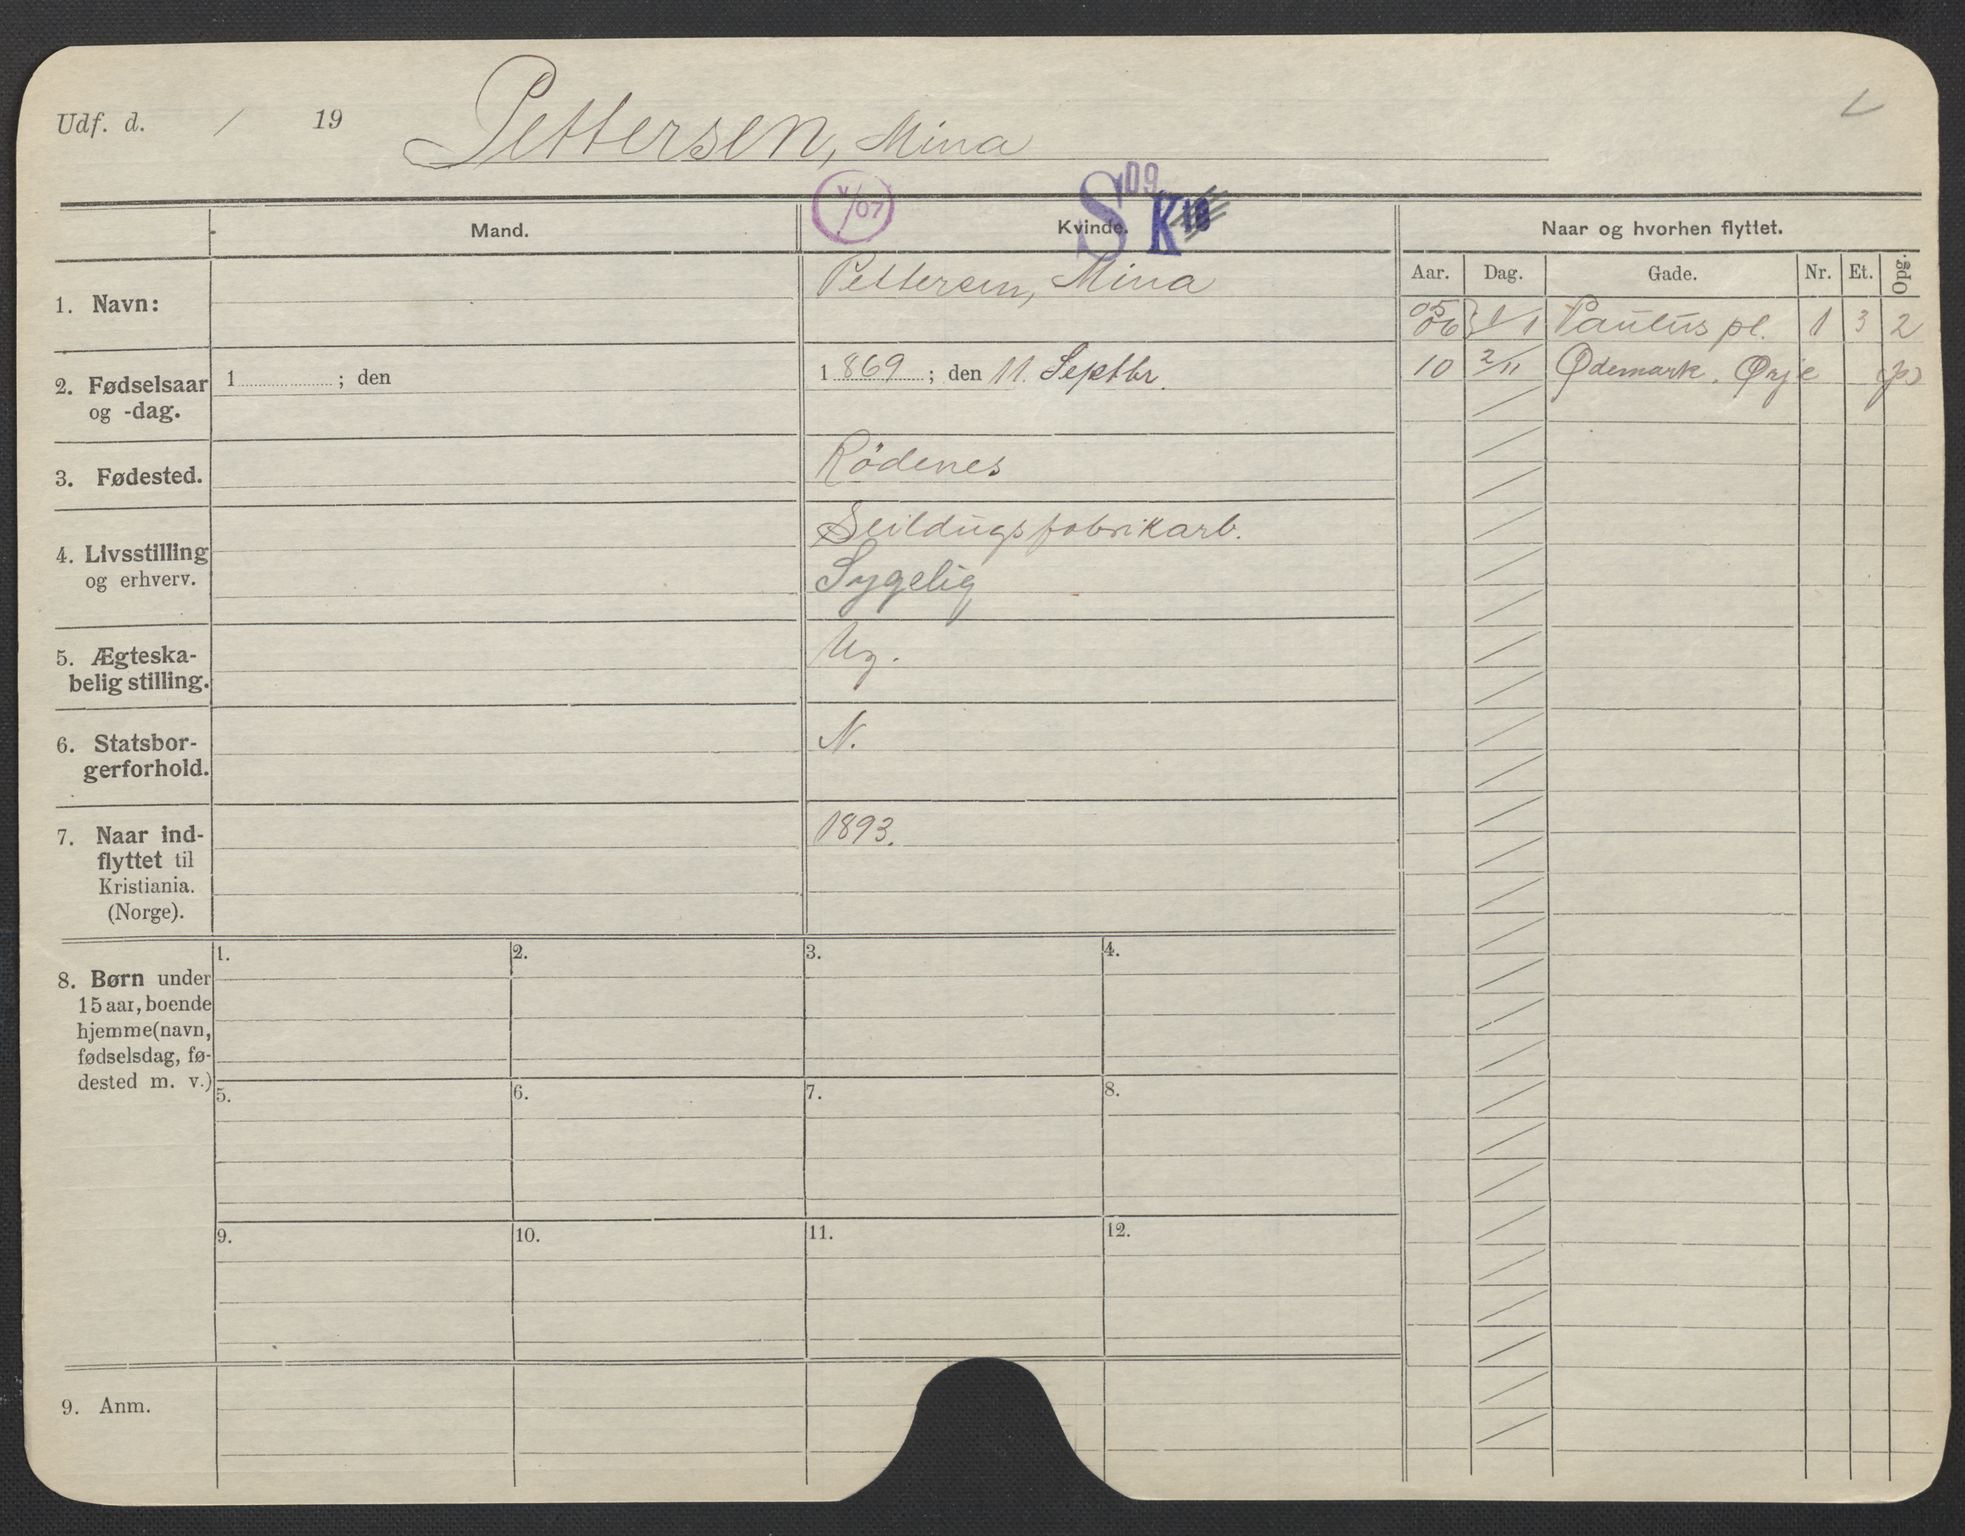 Udf. d. / 19 Pettersen, Mina
V/07
S 09 K 10
Mand. Kvinde. Naar og hvorhen flyttet.
Aar. Dag. Gade. Nr. Et. Opg.
1. Navn: Pettersen, Mina
05
06 } 1/1 Paulus pl. 1 3 2
10 2/11 Ødemark. Ørje
2. Fødselsaar
og -dag.
1 ; den
1 869 ; den 11. Septbr.
3. Fødested. Rödenes
4. Livsstilling
og erhverv.
Seildugsfabrikarb.
Sygelig
5. Ægteska-
belig stilling.
Ug.
6. Statsbor-
gerforhold.
N.
7. Naar ind-
flyttet til
Kristiania.
(Norge).
1893.
8. Børn under
15 aar, boende
hjemme (navn,
fødselsdag, fø-
dested m. v.)
1. 2. 3. 4.
5. 6. 7. 8.
9. 10. 11. 12.
9. Anm.